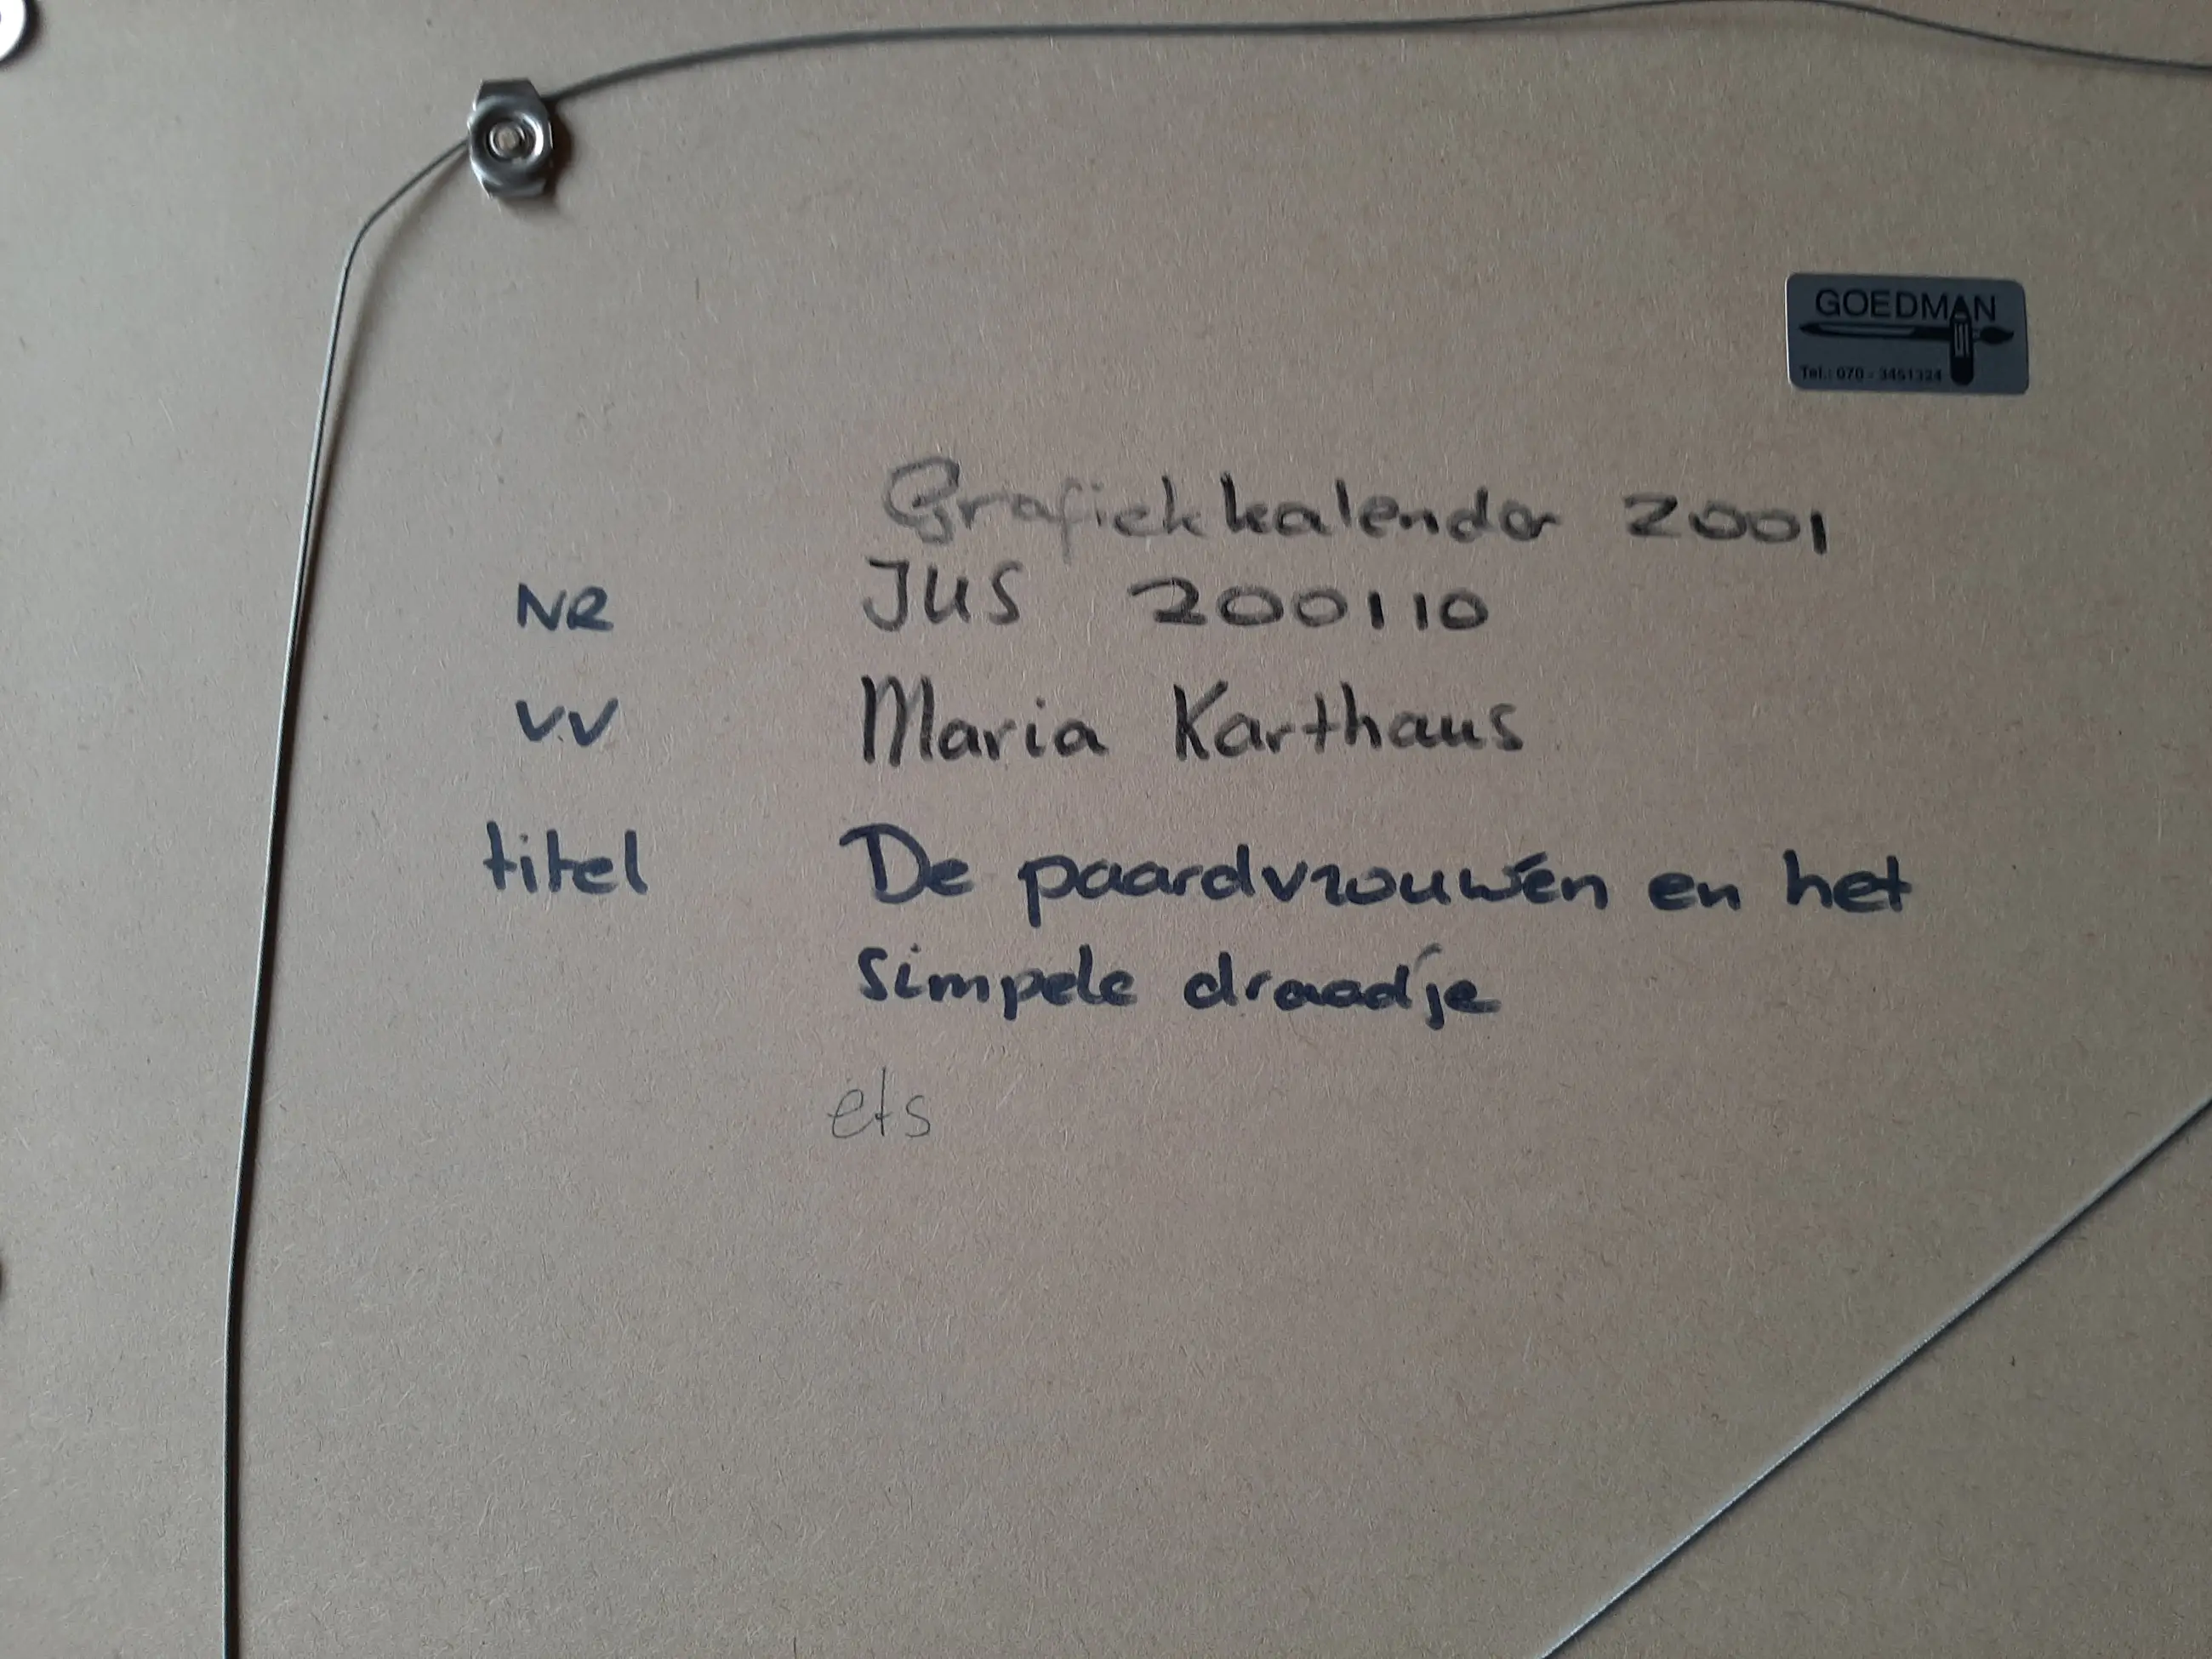 GOEDMAN
Tel.: 070 - 3451324
Grafiekkalender 2001
NR JUS 200110
V.V Maria Karthaus
titel De paardvrouwen en het
simpele draadje
ets